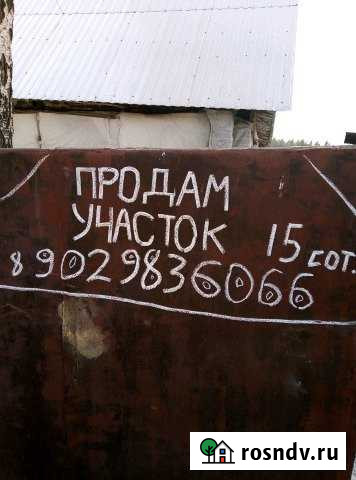 ПРОДАМ
УЧАСТОК 15 сот.
89029836066
rosndv.ru